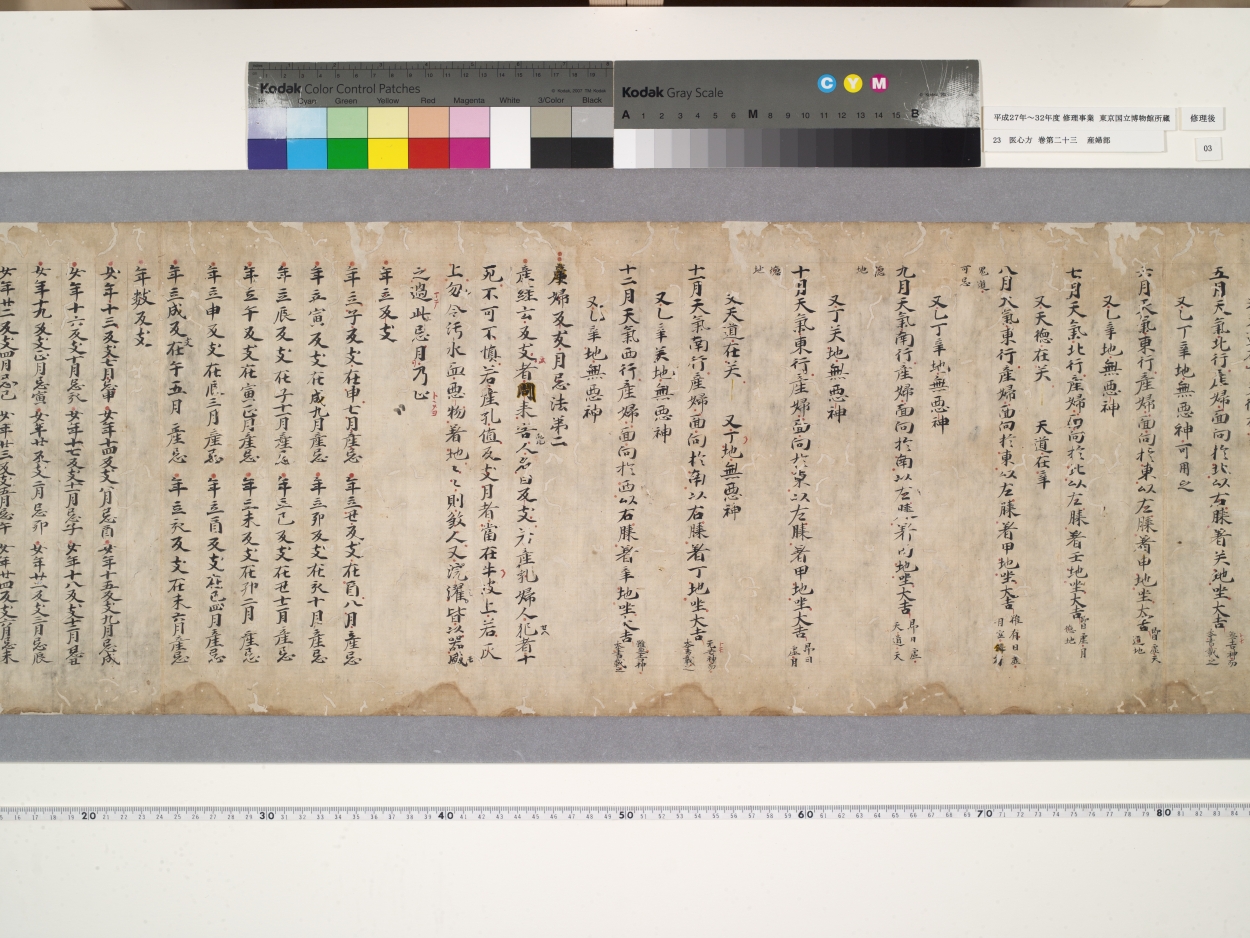 Kodak Color Control Patches
Cyan Green Yellow Red Magenta White 3/Color Black
Kodak Gray Scale
C Y M
A 1 2 3 4 5 6 M 8 9 10 11 12 13 14 15 B
平成27年～32年度 修理事業 東京国立博物館所蔵
23 医心方 巻第二十三 産婦部
修理後
03
五月天氣北行産婦面向於北以右膝著癸地坐大吉
又乙丁辛地無惡神可用之
六月天氣東行産婦面向於東以左膝著甲地坐大吉
又乙辛地無惡神
七月天氣北行産婦面向於北以左膝著壬地坐大吉
又天德在癸 天道在辛
八月天氣東行産婦面向於東以左膝著甲地坐大吉
又乙丁辛地無惡神
九月天氣南行産婦面向於南以左膝著丙地坐大吉
又丁癸地無惡神
十月天氣東行産婦面向於東以左膝著甲地坐大吉
又天道在癸 又丁地無惡神
十一月天氣南行産婦面向於南以右膝著丁地坐大吉
又乙辛癸地無惡神
十二月天氣西行産婦面向於西以右膝著辛地坐大吉
又乙辛地無惡神
産婦反支月忌法第二
産經云反支者周來害人名曰反支若産乳婦人犯者十
死不可不慎若産乳值反支月者當在牛皮上若灰
上勿令污水血惡物著地々則煞人又浣濯皆以器盛
之過此忌月乃止
年立反支
年立子反支在申七月産忌 年立丑反支在酉八月産忌
年立寅反支在戌九月産忌 年立卯反支在亥十月産忌
年立辰反支在子十一月産忌 年立巳反支在丑十二月産忌
年立午反支在寅正月産忌 年立未反支在卯二月産忌
年立申反支在辰三月産忌 年立酉反支在巳四月産忌
年立戌反支在午五月産忌 年立亥反支在未六月産忌
年數反支
女年十三反支七月忌申 女年十四反支八月忌酉 女年十五反支九月忌戌
女年十六反支十月忌亥 女年十七反支十一月忌子 女年十八反支十二月忌丑
女年十九反支正月忌寅 女年廿反支二月忌卯 女年廿一反支三月忌辰
女年廿二反支四月忌巳 女年廿三反支五月忌午 女年廿四反支六月忌未
20 30 40 50 60 70 80